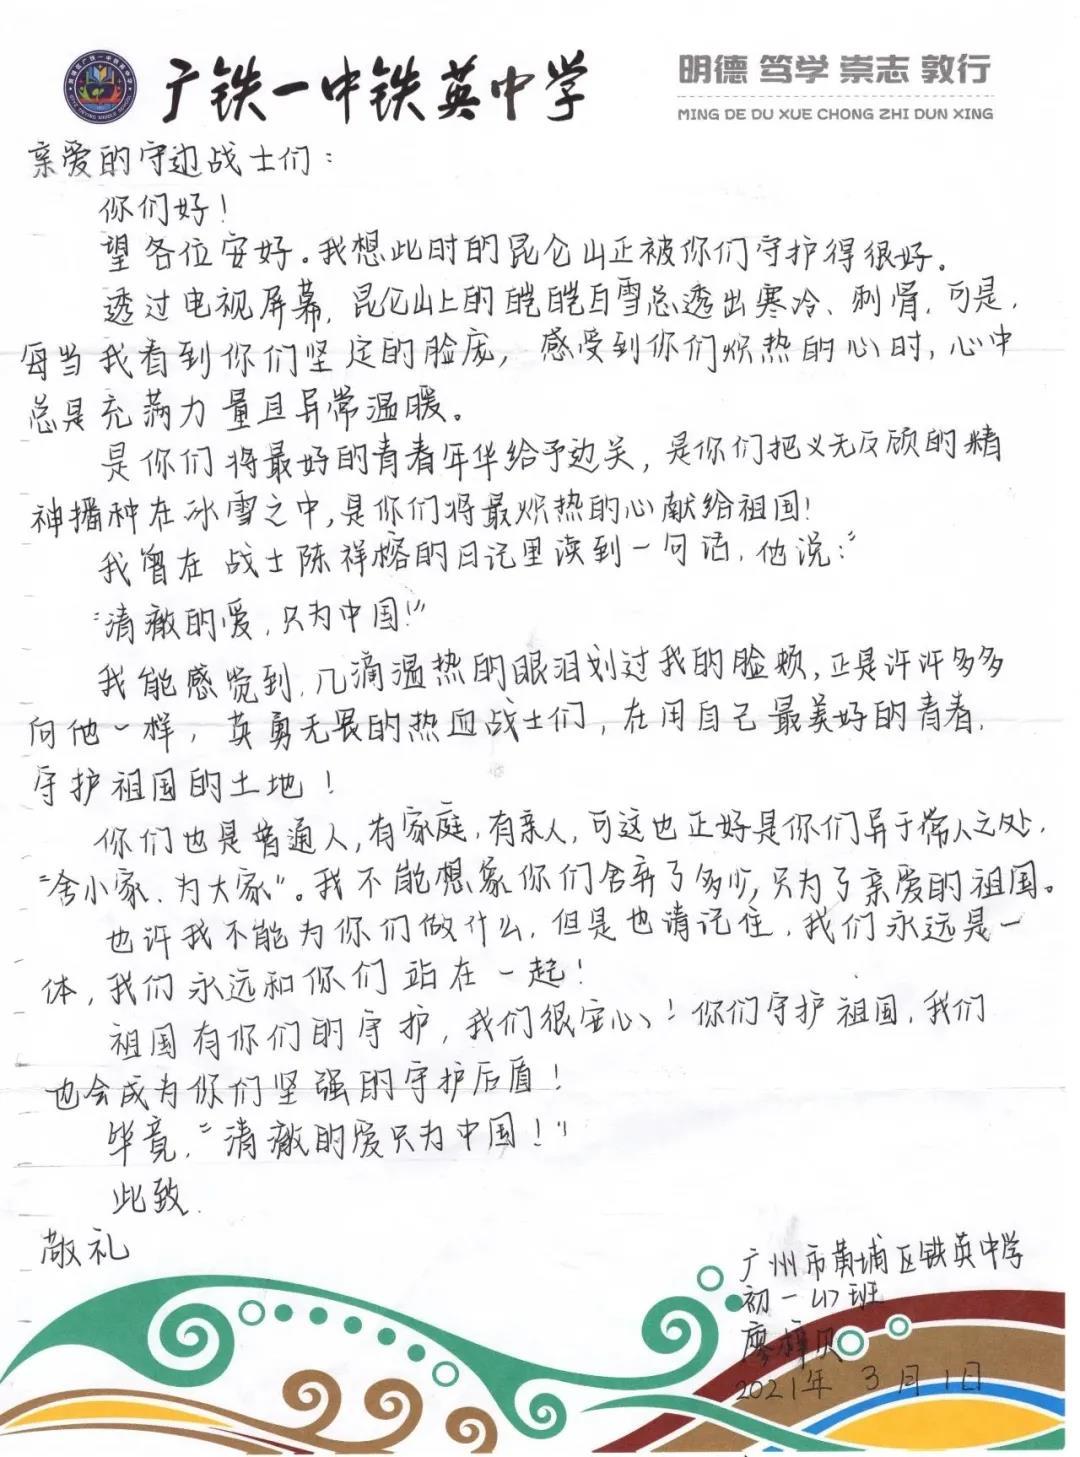 广铁一中铁英中学
明德 笃学 崇志 敦行
MING DE DU XUE CHONG ZHI DUN XING
亲爱的守边战士们：
你们好！
望各位安好。我想此时的昆仑山正被你们守护得很好。
透过电视屏幕，昆仑山上的皑皑白雪总透出寒冷、刺骨，可是，
每当我看到你们坚定的脸庞，感受到你们炽热的心时，心中
总是充满力量且异常温暖。
是你们将最好的青春年华给予边关，是你们把义无反顾的精
神播种在冰雪之中，是你们将最炽热的心献给祖国！
我曾在战士陈祥榕的日记里读到一句话，他说：“
“清澈的爱，只为中国！”
我能感觉到，几滴温热的眼泪划过我的脸颊，正是许许多多
向他一样，英勇无畏的热血战士们，在用自己最美好的青春，
守护祖国的土地！
你们也是普通人，有家庭，有亲人，可这也正好是你们异于常人之处，
“舍小家、为大家”。我不能想象你们舍弃了多少，只为了亲爱的祖国。
也许我不能为你们做什么，但是也请记住，我们永远是一
体，我们永远和你们站在一起！
祖国有你们的守护，我们很安心！你们守护祖国，我们
也会成为你们坚强的守护后盾！
毕竟，“清澈的爱只为中国！”
此致
敬礼
广州市黄埔区铁英中学
初一(4)班
廖梓贝
2021年3月1日